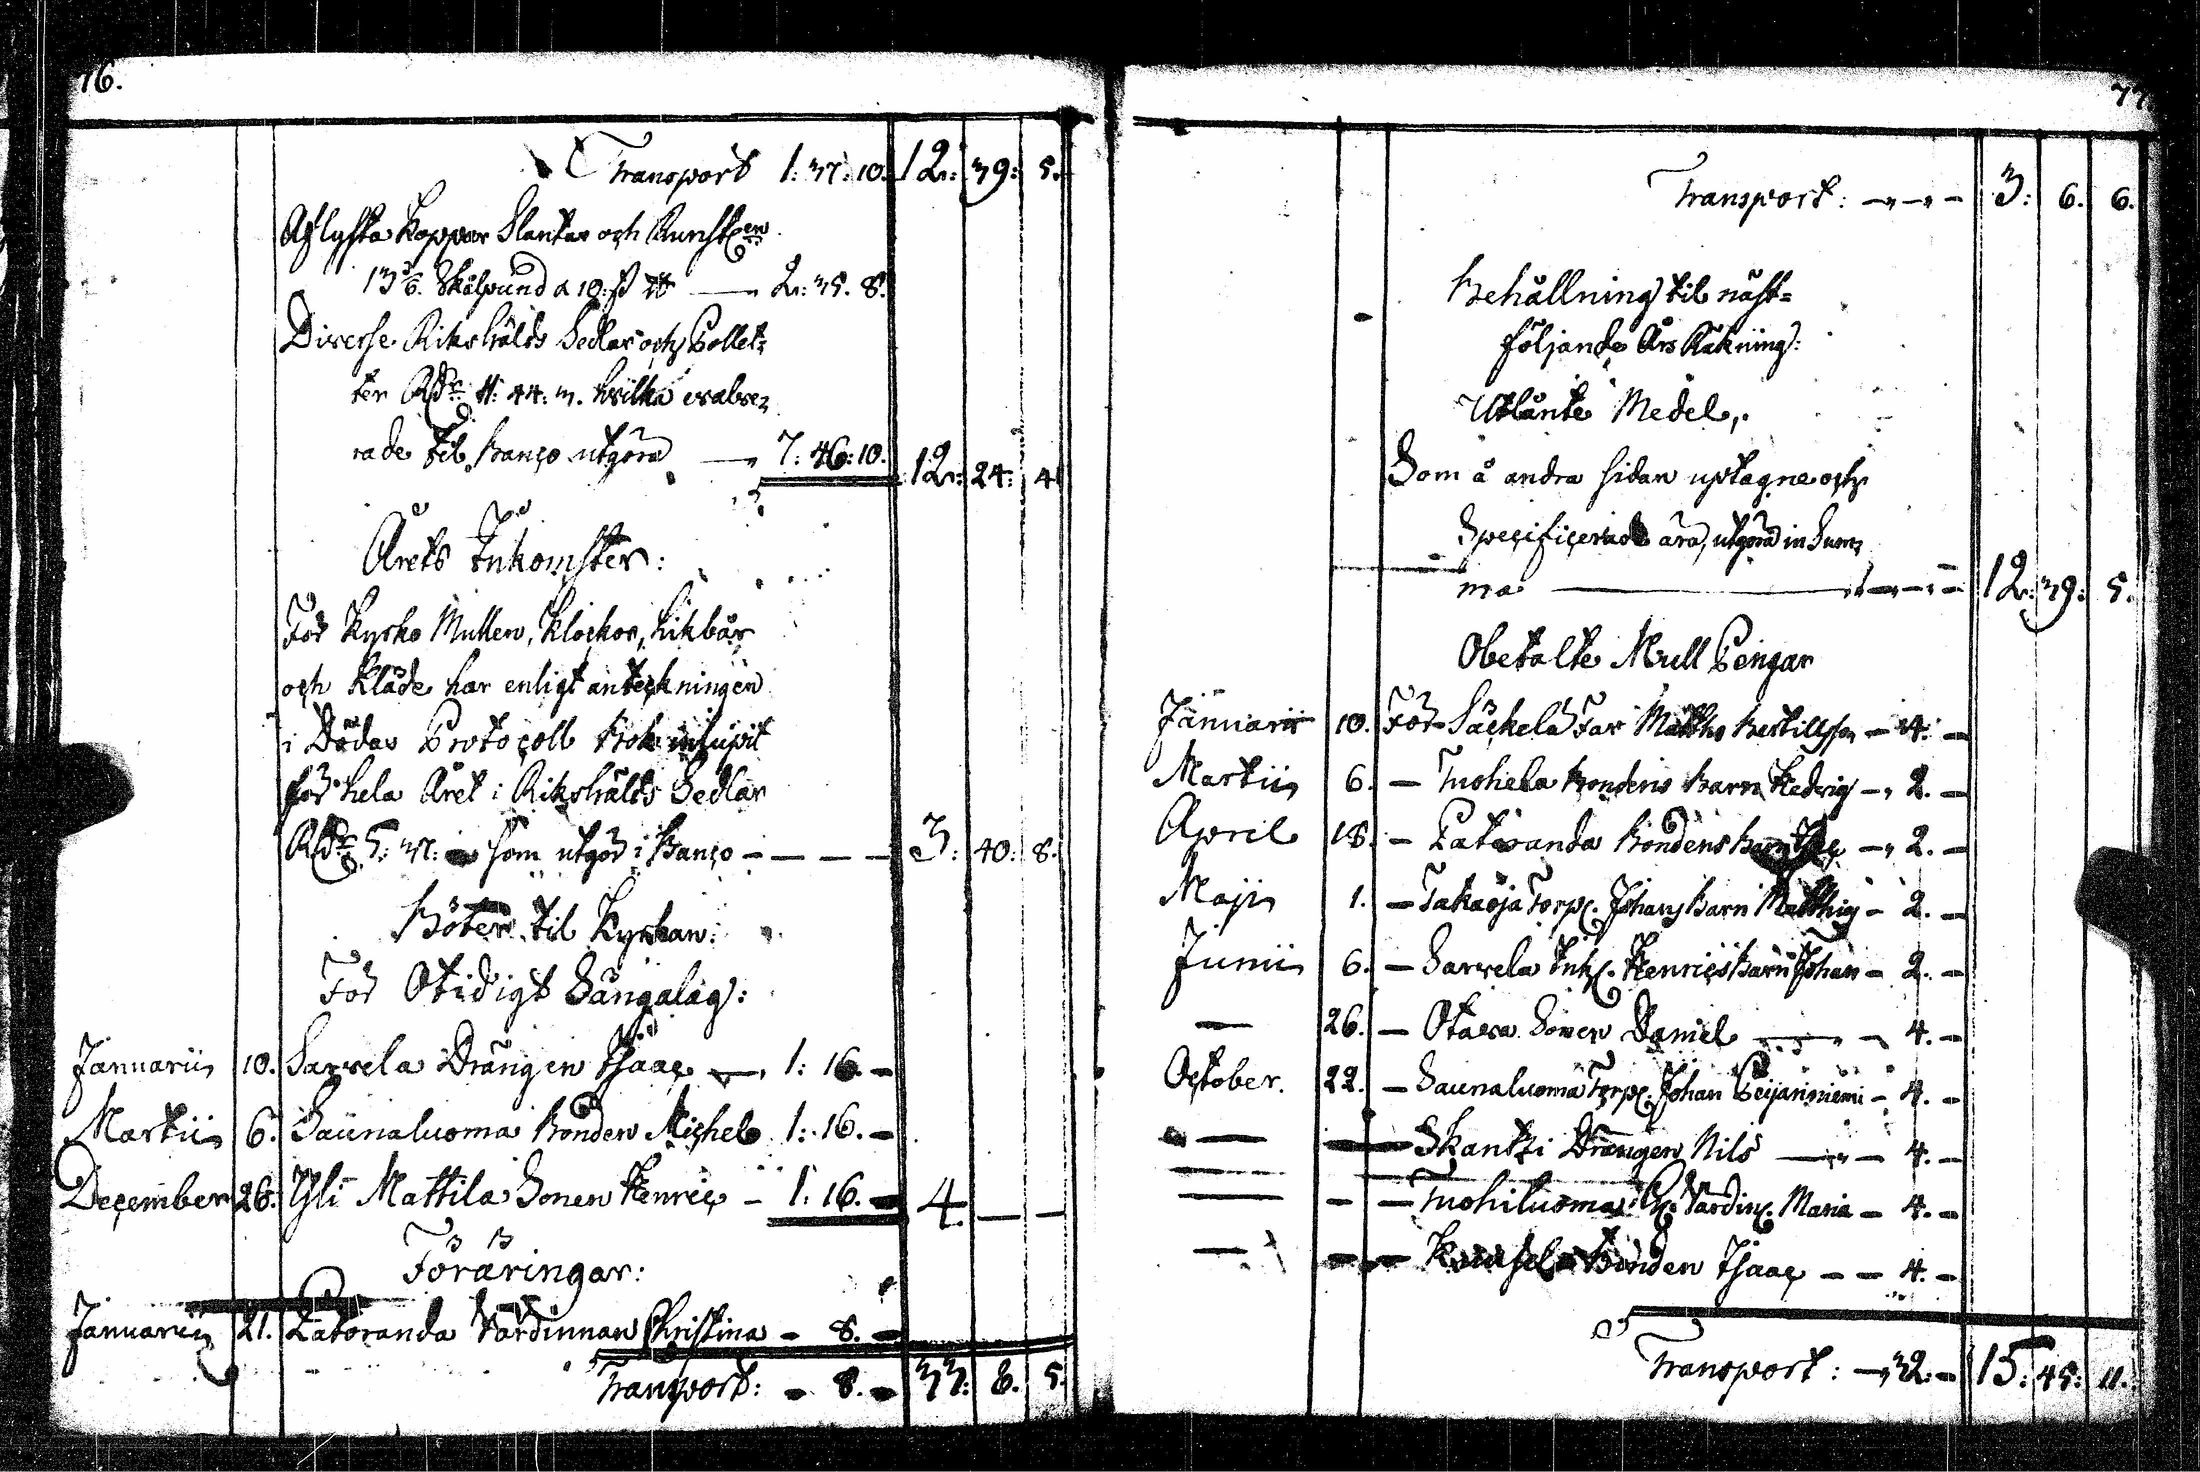 76.
Transport 1: 37: 10. 12: 39: 5.
Aflysta Koppar Slantar och Runst
13 Skålpund a 10: ß — 2: 35. 8.
Diverse Riksgälds Sedlar och Pollet=
ter Rd 11: 44: 3. hvilka evalve=
rade til Banco utgöra — 7: 46: 10. 12: 24: 4
Årets Inkomster:
För Kyrko Mullen, Klockor, Likbår
och Kläde har enligt anteckningen
i Dödas Protocoll Bok influtit
för hela Året i Riksgälds Sedlar
Rd 5: 37: — som utgör i Banco — — — — 3: 40: 8.
Böter til Kyrkan:
För Otidigt Sängalag:
Januarii 10. Sarvela Drängen Isaac — 1: 16. —
Martii 6. Saunaluoma Bonden Michel 1: 16. —
December 26. Yli Mattila Sonen Henric — 1: 16. — 4. — —
Föräringar:
Januarii 21. Latoranda Värdinnan Christina — 8. —
Transport: — 8. — 33: 8. 5.
77
Transport: — — — 3: 6. 6.
Behållning til näst=
följande Års Räkning:
Utlånte Medel,
Som å andra sidan uptagne och
Specificerade äro, utgöra in Sum=
ma — — — 12: 39: 5.
Obetalte Mull Pengar
Januarii 10. För Säckelä Far Matths Bertillsson — 4. —
Martii 6. — Tuohela Bondens Barn Hedvig — 2. —
April 18. — Latoranda Bondens Barn — 2. —
Maji 1. — Takaoja Torp. Johans Barn Matthias — 2. —
Junii 6. — Sarvela Inh. Henrics Barn Johan — 2. —
— 26. — Otava Sonen Daniel — 4. —
October. 22. — Saunaluoma Torp. Johan Peijarinniemi — 4. —
— — — Skantzi Drängen Nils — 4. —
— — — Tuohiluoma Värdin. Maria — 4. —
— — — Bonden Isaac — — 4. —
Transport: — 32: — 15: 45: 11.